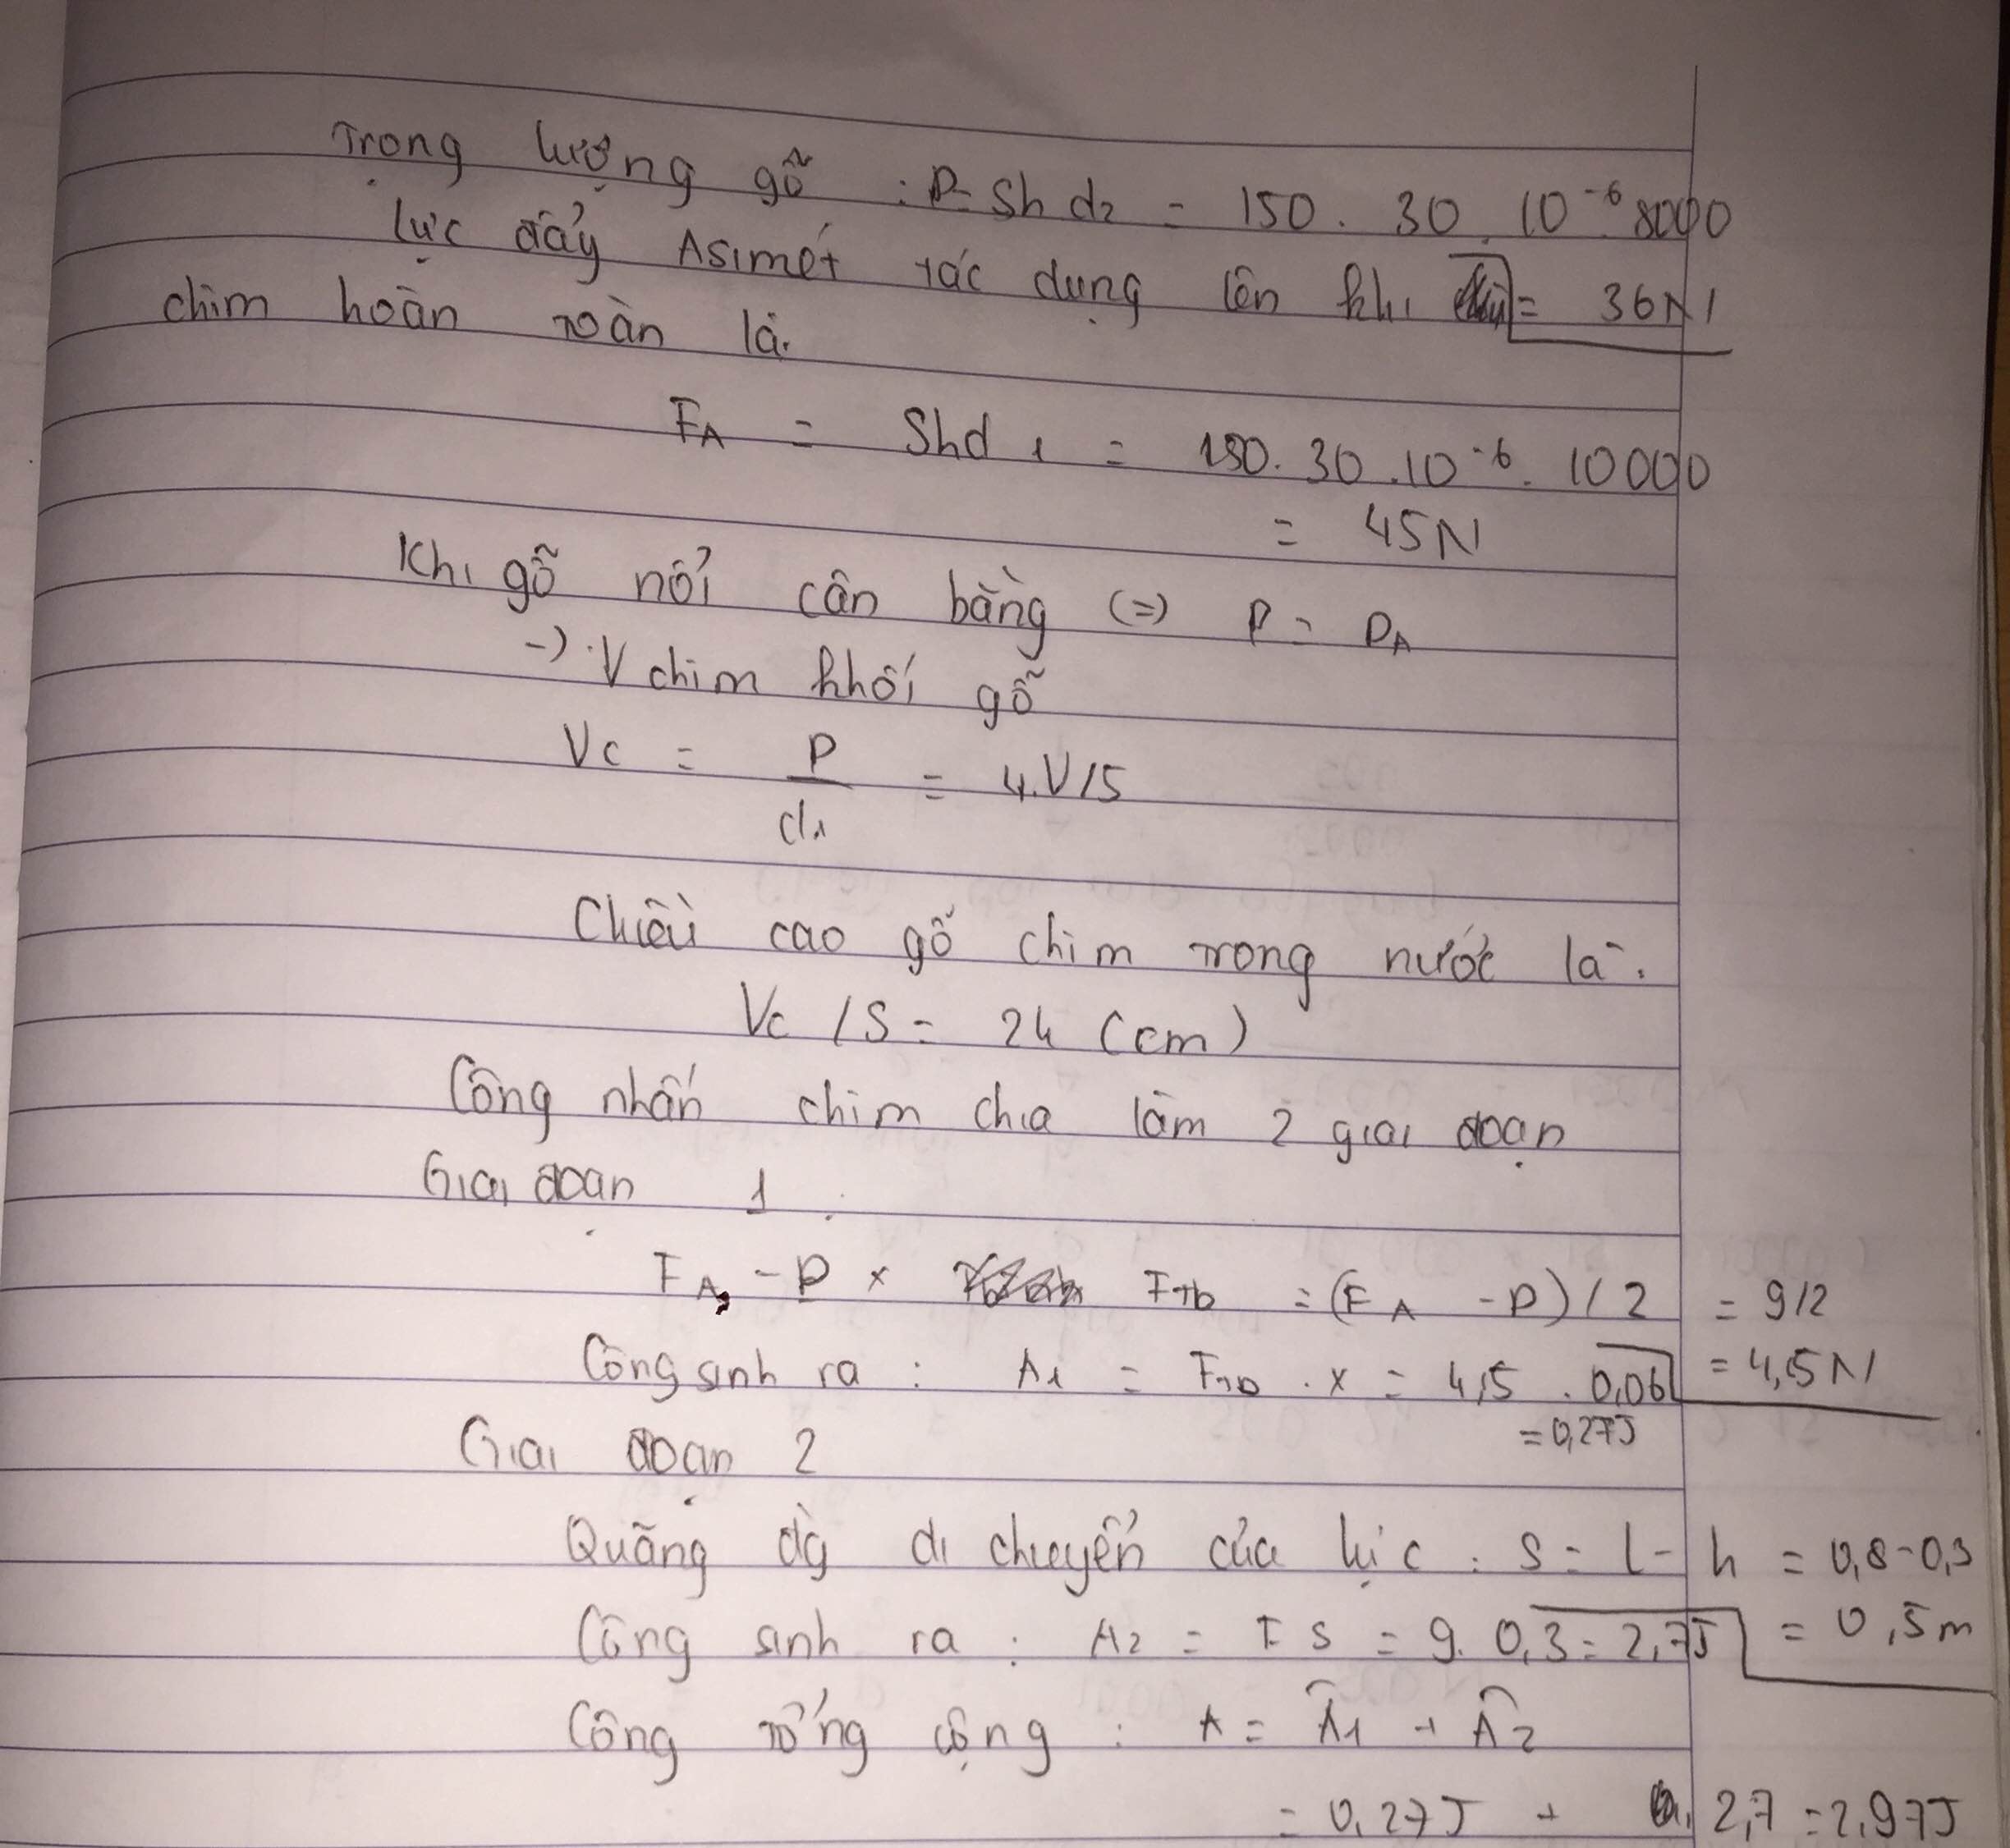 Trọng lượng gỗ : P = Sh d2 = 150 . 30 . 10⁻⁶ . 8000
Lực đẩy Asimét tác dụng lên khi = 36N
chìm hoàn toàn là.
FA = Shd1 = 150. 30 .10⁻⁶. 10000
= 45N
Khi gỗ nổi cân bằng (=) P = PA
-) V chìm khối gỗ
Vc = P/d1 = 4.V/5
Chiều cao gỗ chìm trong nước là.
Vc / S = 24 (cm)
Công nhấn chìm chia làm 2 giai đoạn
Giai đoạn 1 :
FA, - P x FTb = (FA - P) / 2 = 9/2
Công sinh ra : A1 = FTb . x = 4,5 . 0,06 = 4,5N
= 0,27J
Giai đoạn 2
Quãng đg di chuyển của lực : S = l - h = 0,8 - 0,3
Công sinh ra : A2 = F S = 9. 0,3 = 2,7J = 0,5m
Công tổng cộng : A = A1 + A2
= 0,27J + 2,7 = 2,97J